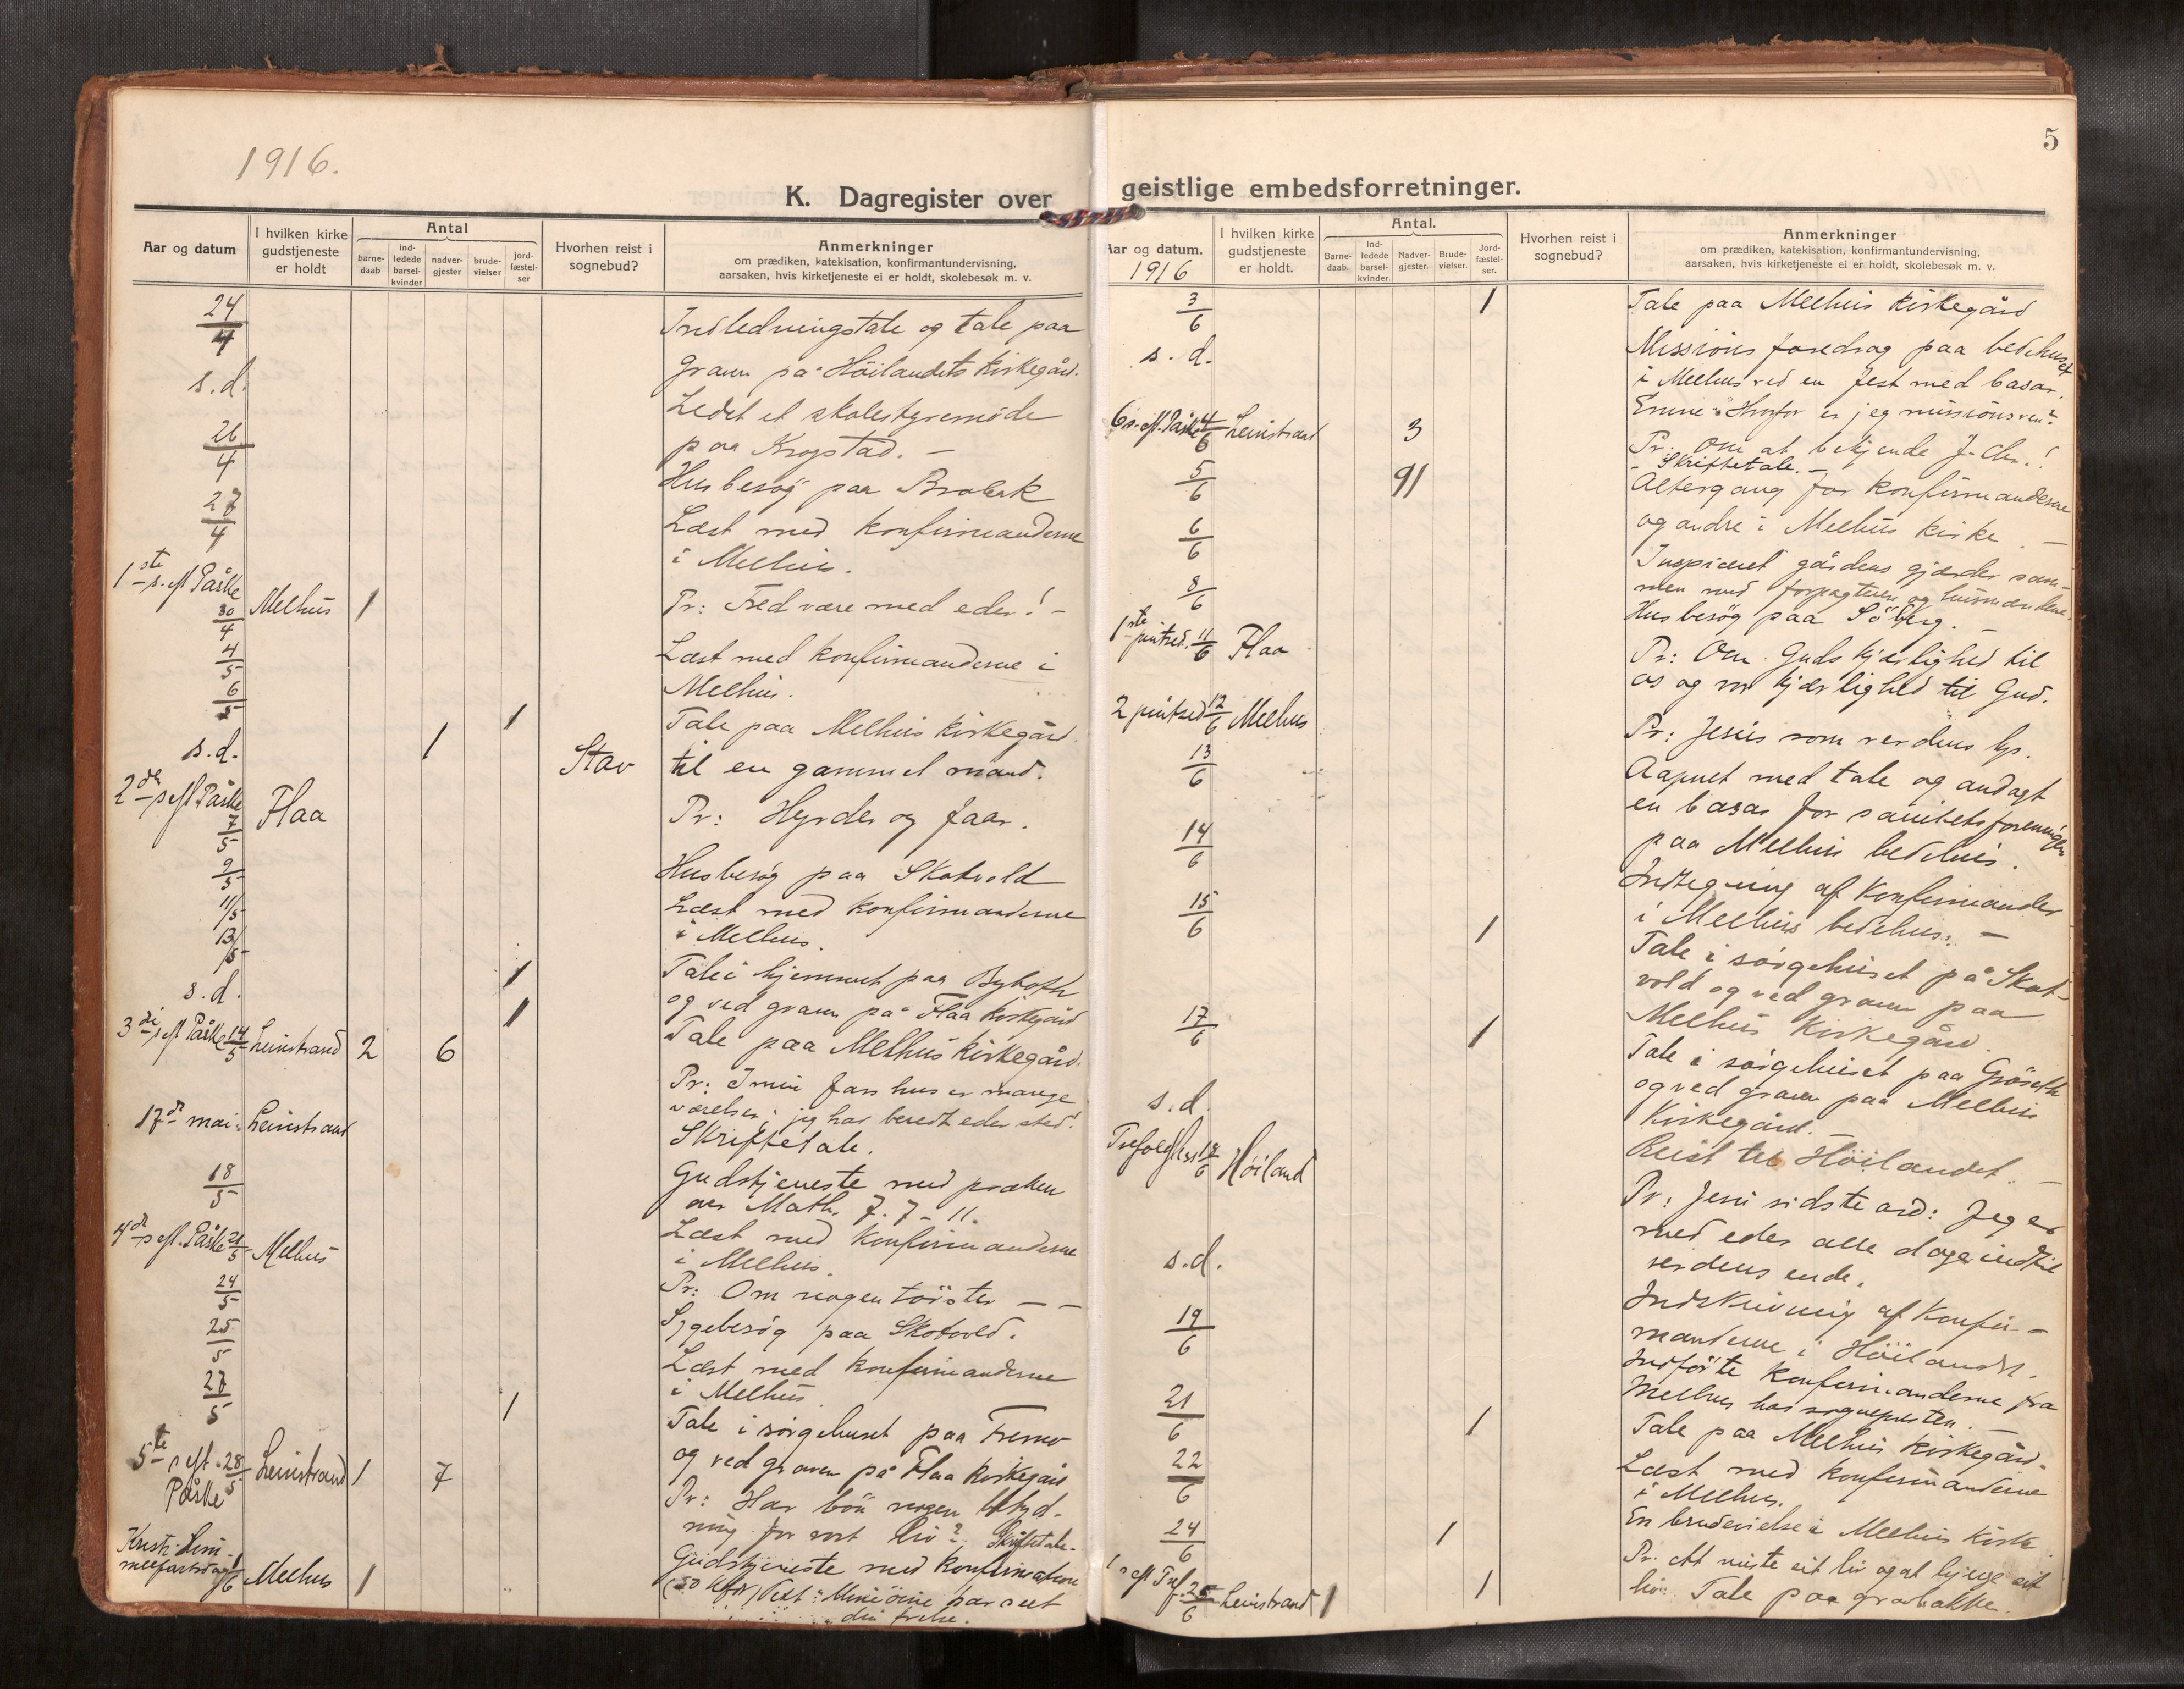 1916.
K. Dagregister over
Aar og datum
I hvilken kirke gudstjeneste er holdt
Antal
barnedaab
indledede barselkvinder
nadvergjester
brudevielser
jordfæstelser
Hvorhen reist i sognebud?
Anmerkninger
om prædiken, katekisation, konfirmantundervisning,
aarsaken, hvis kirketjeneste ei er holdt, skolebesøk m. v.
24/4 Indledningstale og tale paa
graven på Höilandets Kirkegård.
s.d. Ledet et skolestyremøde
paa Krogstad. –
26/4 Husbesøg paa
27/4 Læst med Konfirmanderne
i Melhus.
1ste s. eft Påske 30/4 Melhus 1 Pr: Fred være med eder! –
4/5 Læst med konfirmanderne i
Melhus.
6/5 1 Tale paa Melhus Kirkegård.
s.d. 1 Stav til en gammel mand.
2den s eft. Påske 7/5 Flaa Pr: Hyrder og faar.
9/5 Husbesøg paa Skotvold
11/5 Læst med konfirmanderne
i Melhus.
13/5 1 Tale i hjemmet paa
og ved graven på Flaa Kirkegård
s.d. 1 Tale paa Melhus Kirkegård.
3die s eft Påske 14/5 Leinstrand 2 6 Pr: I min fars hus er mange
værelser; jeg har beredt eder sted!
Skriftetale.
17de mai: Leinstrand Gudstjeneste med præken
over Math. 7. 7 – 11.
18/5 Læst med Konfirmanderne
i Melhus.
4de s eft. Påske 21/5 Melhus Pr: Om nogen törster – –
24/5 Sygebesög paa Skotvold.
25/5 Læst med konfirmanderne
i Melhus
27/5 1 Tale i sörgehuset paa Fremo
og ved graven på Flaa Kirkegård
5te s eft. Påske 28/5 Leinstrand 1 7 Pr: Har bön nogen betyd-
ning for vort liv? Skriftetale.
Kristi Him-
melfartsdag 1/6 Melhus 1 Gudstjeneste med konfirmation
Text: Mine öine har seet
din frelse.
5
geistlige embedsforretninger.
Aar og datum.
1916
I hvilken kirke gudstjeneste er holdt.
Antal.
Barnedaab.
Indledede barselkvinder.
Nadvergjester.
Brudevielser.
Jordfæstelser.
Hvorhen reist i sognebud?
Anmerkninger
om prædiken, katekisation, konfirmantundervisning,
aarsaken, hvis kirketjeneste ei er holdt, skolebesøk m. v.
3/6 1 Tale paa Melhus Kirkegård
s. d. Missions foredrag paa bedehuset
i Melhus ved en fest med basar.
Emne: Hvorfor er jeg missionsven?
6 s. eft. Påske 4/6 Leinstrand 3 Pr: Om at bekjende J. Chr.!
– Skriftetale. –
5/6 91 Altergang for Konfirmanderne
og andre i Melhus Kirke. –
6/6 Inspiceret gårdens gjærder sam-
men med forpagteren og husmændene.
8/6 Husbesög paa Söberg. –
1ste pintsed. 11/6 Flaa Pr: Om Guds kjærlighed til
os og vor kjærlighed til Gud.
2 pintsed 12/6 Melhus Pr: Jesus som verdens lys.
13/6 Aapnet med tale og andagt
en basar for sanitetsforeningen
paa Melhus bedehus.
14/6 Indtegning af Konfirmander
i Melhus bedehus. –
15/6 1 Tale i sörgehuset på Skot-
vold og ved graven paa
Melhus Kirkegård.
17/6 1 Tale i sörgehuset paa Gröseth
og ved graven paa Melhus
Kirkegård. –
s.d. Reist til Höilandet. –
18/6 Höiland Pr: Jesu sidste ord: Jeg er
med eder alle dage indtil
verdens ende.
s.d. Indskrivning af Konfir-
manderne i Höilandet.
19/6 Indförte Konfirmanderne fra
Melhus hos sognepresten.
21/6 1 Tale paa Melhus Kirkegård.
22/6 Læst med Konfirmanderne
i Melhus.
24/6 1 En brudevielse i Melhus Kirke
1 s eft Tref. 25/6 Leinstrand 1 1 Pr. At miste sit liv og at bjerge sit
liv. Tale paa